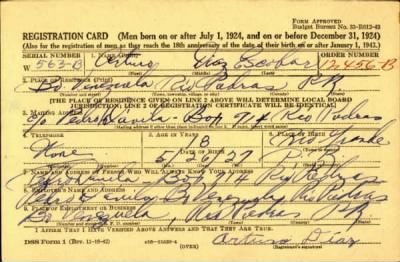 FORM APPROVED
Budget Bureau No. 33-R012-43
REGISTRATION CARD (Men born on or after July 1, 1924, and on or before December 31, 1924)
(Also for the registration of men as they reach the 18th anniversary of the date of their birth on or after January 1, 1943.)
SERIAL NUMBER 1. NAME (Print) ORDER NUMBER
W 563-B Arturo Diaz Escobar 12,456-B
2. PLACE OF RESIDENCE (Print)
Bo Venezuela Rio Piedras P.R.
[THE PLACE OF RESIDENCE GIVEN ON LINE 2 ABOVE WILL DETERMINE LOCAL BOARD
JURISDICTION; LINE 2 OF REGISTRATION CERTIFICATE WILL BE IDENTICAL]
3. MAILING ADDRESS
c/o Pedro Davila - Box Rio Piedras
4. TELEPHONE 5. AGE IN YEARS 6. PLACE OF BIRTH
18 Rio Grande
DATE OF BIRTH
None
7. NAME AND ADDRESS OF PERSON WHO WILL ALWAYS KNOW YOUR ADDRESS
Pedro Davila Box Rio Piedras
8. EMPLOYER'S NAME AND ADDRESS
Pedro Davila Bo Venezuela, Rio Piedras
9. PLACE OF EMPLOYMENT OR BUSINESS
Bo Venezuela, Rio Piedras P.R.
I AFFIRM THAT I HAVE VERIFIED ABOVE ANSWERS AND THAT THEY ARE TRUE.
DSS Form 1 (Rev. 11-16-42) (OVER) Arturo Diaz
(Registrant's signature)